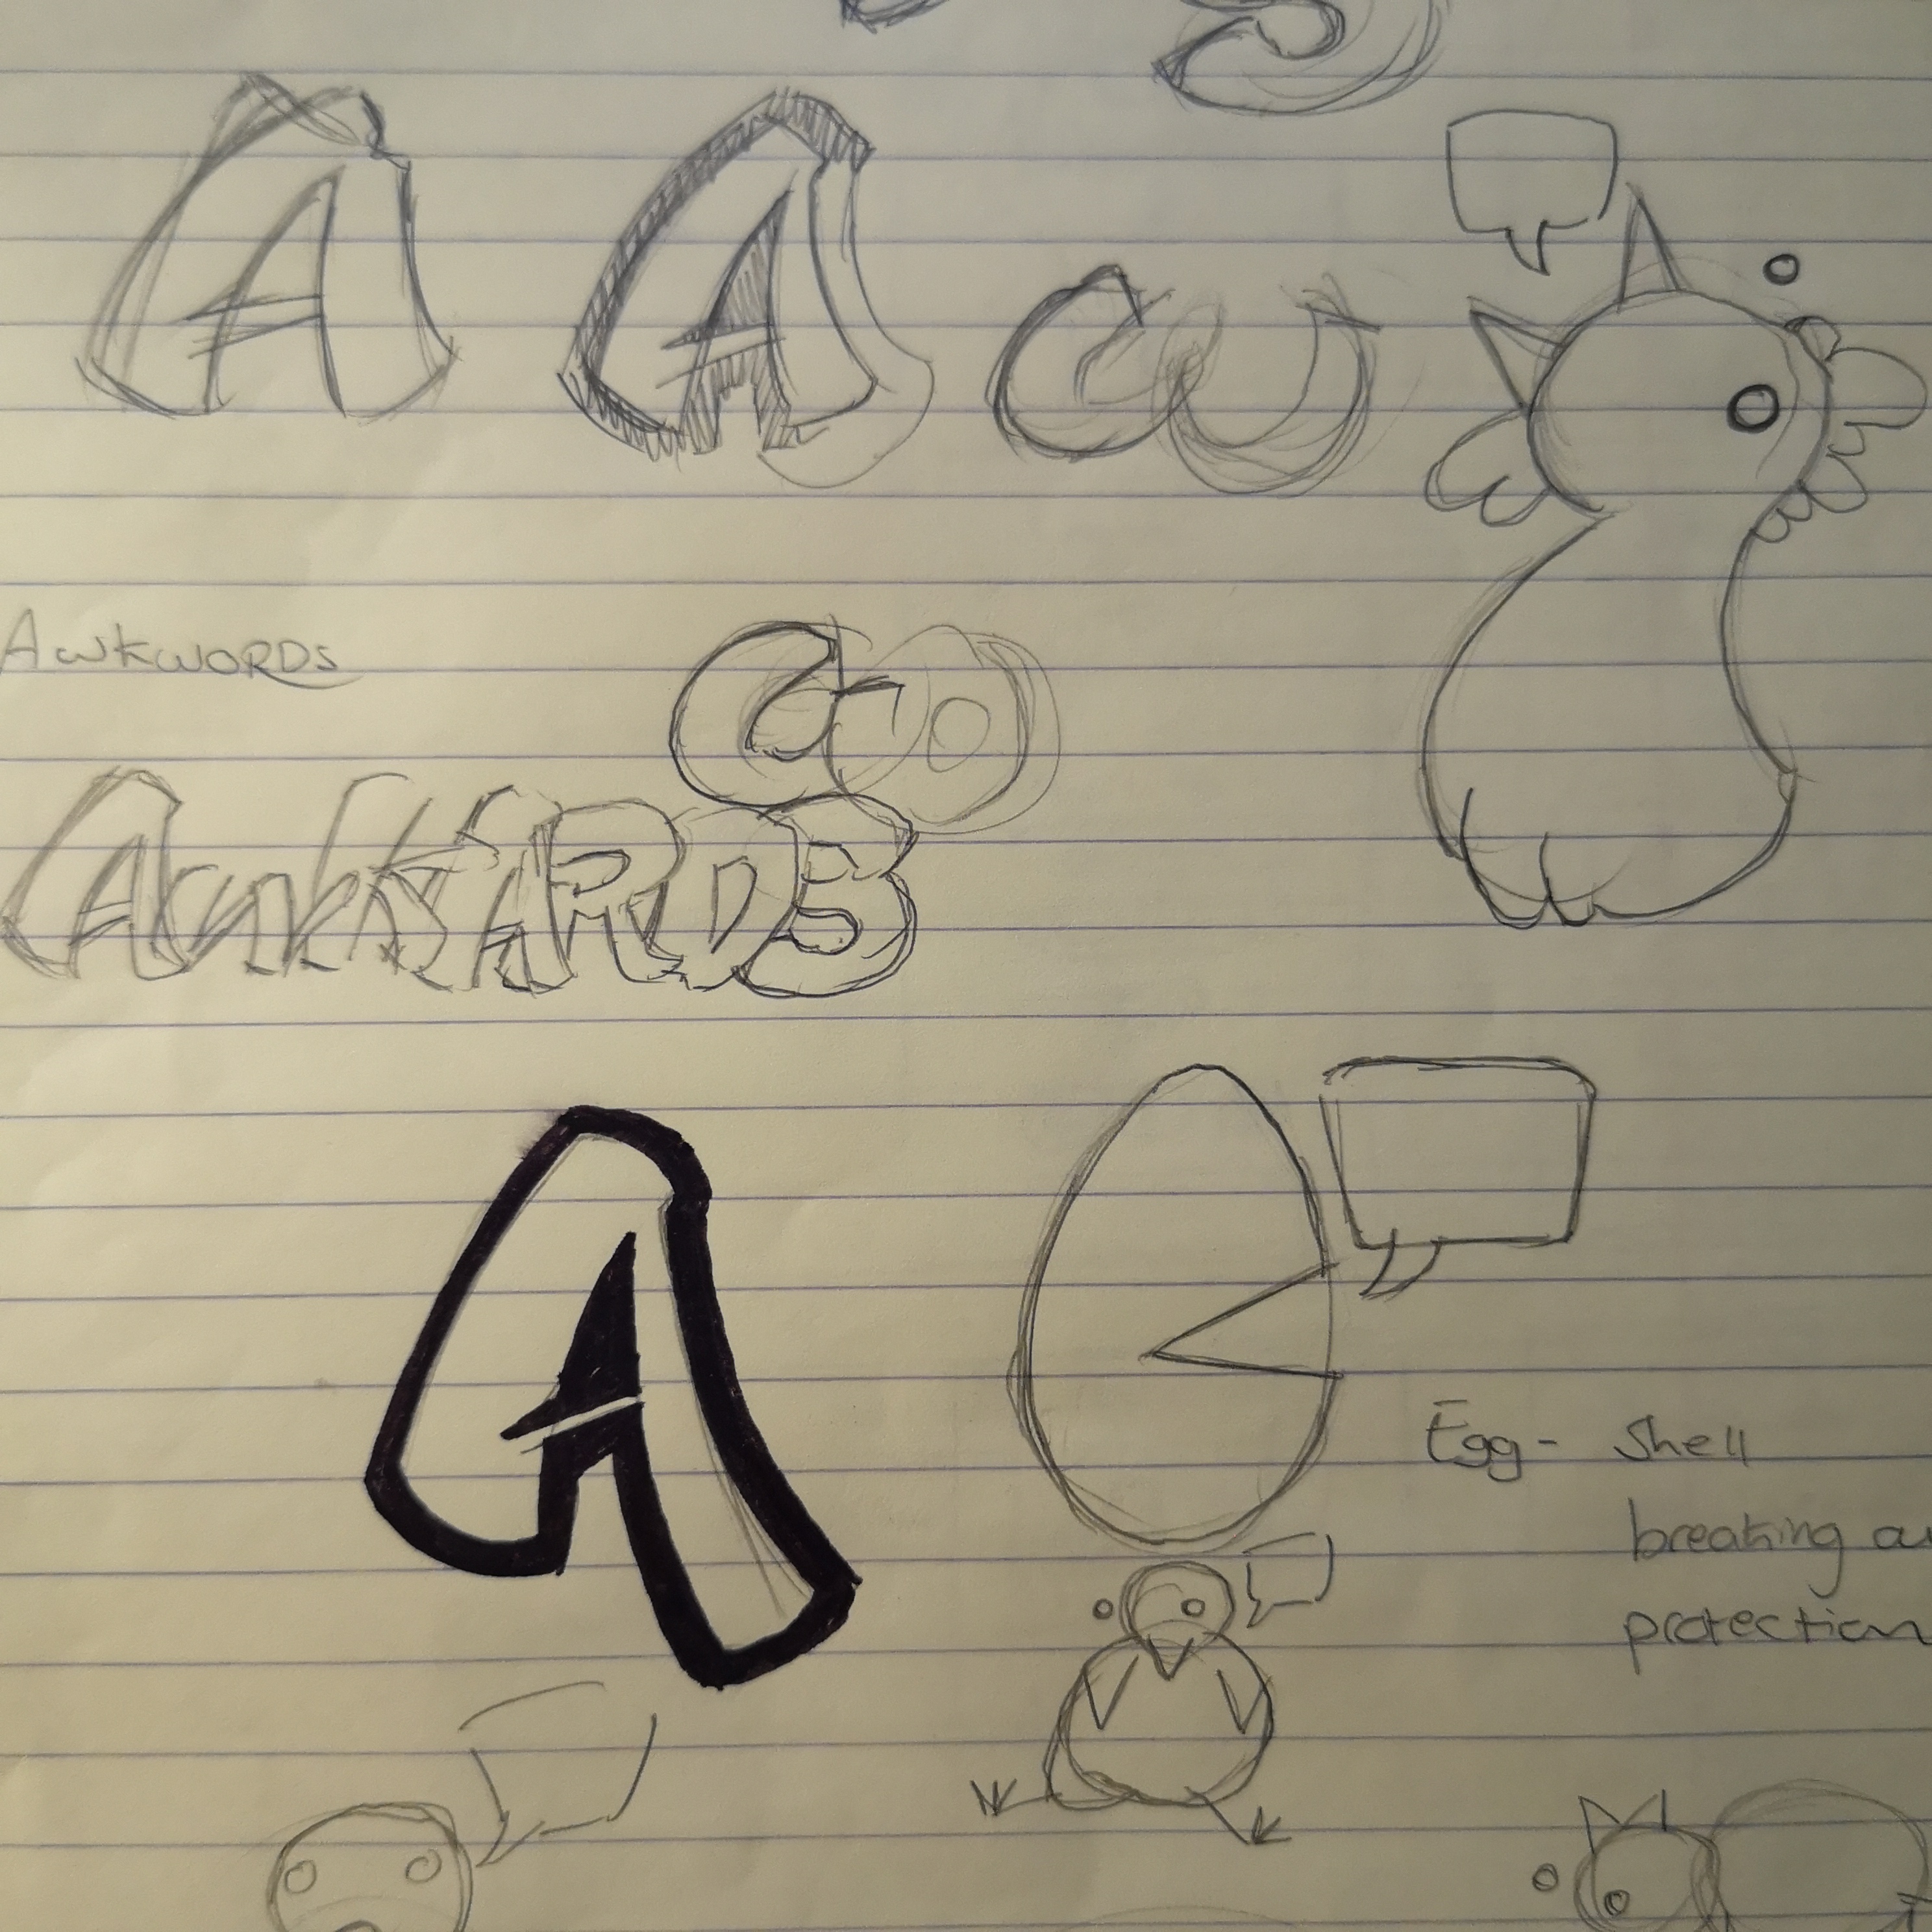 A A
cw
AWKWORDS
co
AwkWARDS
A
Egg - Shell
breaking
protection